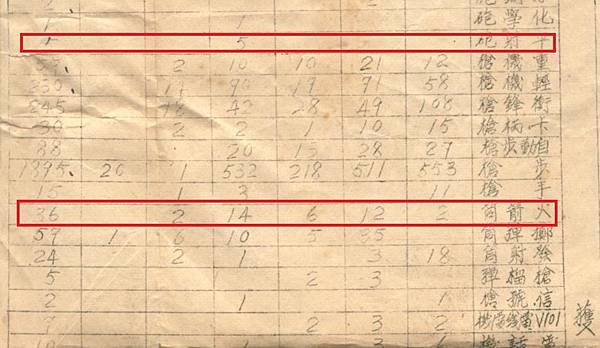 化學砲 1 1
平射砲 5
重機槍 12 21 10 10 2
輕機槍 58 71 19 90
衝鋒槍 108 49 28 42 18 245
卡柄槍 15 10 1 2 2 30
自動步槍 27 28 13 20 88
步槍 553 511 218 532 1 20 1835
手槍 11 3 1 15
火箭筒 2 12 6 14 2 36
擲彈筒 10 6 1 59
發射筒 18 3 1 2 24
槍榴彈 3 2 5
信號槍 1 1 2
V101 2 3 2 7
話機 3 6
獲